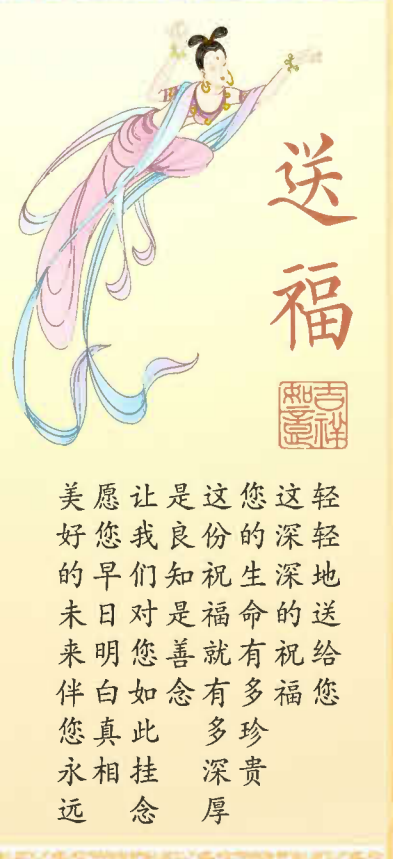 送福
吉祥
如意
轻轻地送给您
这深深的祝福
您的生命有多珍贵
这份祝福就有多深厚
是良知是善念
让我们对您如此挂念
愿您早日明白真相
美好的未来伴您永远